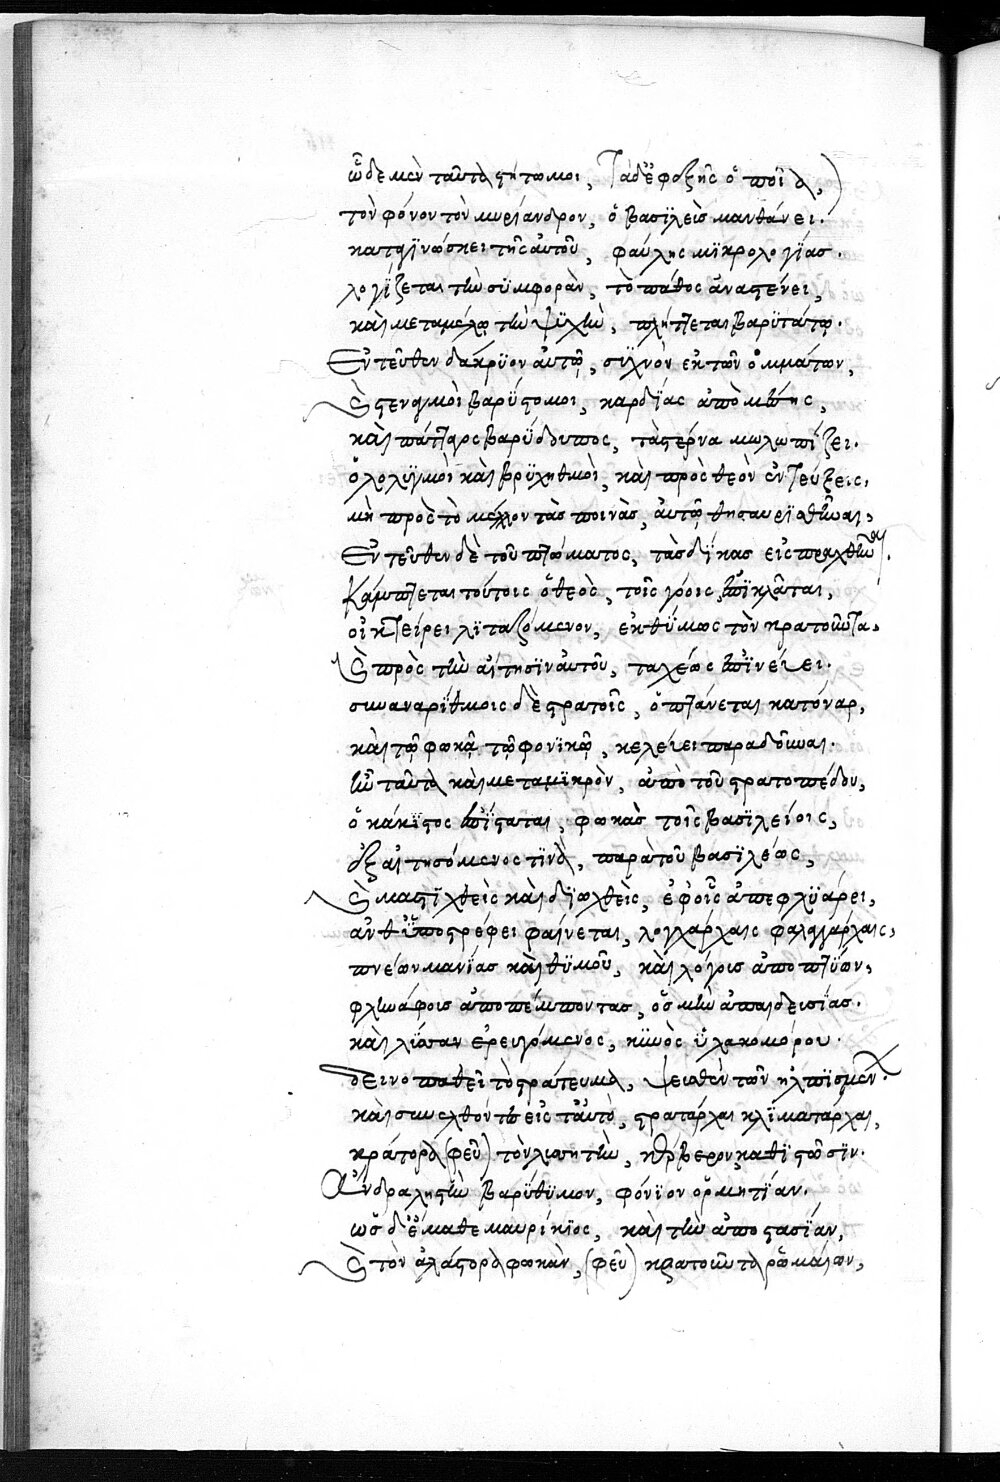 ὧδε μὲν ταῦτα στήτω μοι, Τὰ δ' ἐφεξῆς ὁποῖα,
τὸν φόνον τὸν μυρίανδρον, ὁ βασϊλεὺς μανθάνει.
καταγϊνώσκει τῆς αὐτοῦ, φαύλης μϊκρολογΐας.
λογΐζεται τὴν συμφορὰν, τὸ πάθος ἀναστένει,
καὶ μεταμέλῳ τὴν ψϋχὴν, πλήττεται βαρϋτάτῳ.
Ἐντεῦθεν δάκρϋον αὐτῷ, συχνὸν ἐκ τῶν ὀμμάτων,
καὶ στεναγμοὶ βαρύστομοι, καρδΐας ἀπὸ μέσης,
καὶ πάταγος βαρΰδουπος, τὰ στέρνα μωλωπΐζει.
ὀλολϋγμοὶ καὶ βρϋχηθμοὶ, καὶ πρὸς θεὸν ἐντεύξεις,
μὴ πρὸς τὸ μέλλον τὰς ποινὰς, αὐτῷ θησαυρϊσθῆναι,
Ἐντεῦθεν δὲ τοῦ πτώματος, τὰς δΐκας εἰσπραχθῆναι.
Κάμπτεται τούτοις ὁ θεὸς, τοῖς γόοις ἐπϊκλᾶται,
οἰκτείρει λϊταζόμενον, ἐκθύμως τὸν κρατοῦντα,
καὶ πρὸς τὴν αἴτησϊν αὐτοῦ, ταχέως ἐπϊνεύει.
σὺν ἀναρΐθμοις δὲ στρατοῖς, ὀπτάνεται κατόναρ,
καὶ τῷ φωκᾷ τῷ φονϊκῷ, κελεύει παραδοῦναι.
ἦν ταῦτα καὶ μετὰ μϊκρὸν, ἀπὸ τοῦ στρατοπέδου,
ὁ κάκϊστος ἐπΐσταται, φωκᾶς τοῖς βασϊλείοις,
ἐξαιτησόμενος τϊνὰ, παρὰ τοῦ βασϊλέως,
καὶ μαστϊχθεὶς καὶ δϊωχθεὶς, ἐφ' οἷς ἀπεφλϋάρει,
ἀνθϋποστρέφει φαίνεται, λογχάρχαις φαλαγγάρχαις,
πνέων μανΐας καὶ θϋμοῦ, καὶ λόγοις ἀποπτύων,
φληνάφοις ἀποπέμποντας, ὀσμὴν ἀπαιδευσΐας.
καὶ λΰσσαν ἐρευγόμενος, κϋνὸς ϋλακομόρου.
δεινοπαθεῖ τὸ στράτευμα, ψευσθὲν τῶν ἠλπϊσμένων.
καὶ συνελθόντες εἰς ταὐτὸ, στρατάρχαι κλϊματάρχαι,
κράτορα (φεῦ) τὸν λῃστὴν, κέρβερον καθϊστῶσϊν.
Ἄνδρα λῃστὴν βαρΰθϋμον, φόνϊον ὁρμητΐαν.
ὡς δ' ἔμαθε μαυρΐκϊος, καὶ τὴν ἀποστασΐαν,
καὶ τὸν ἀλάστορα φωκᾶν, (φεῦ) κρατοῦντα ῥωμαίων,